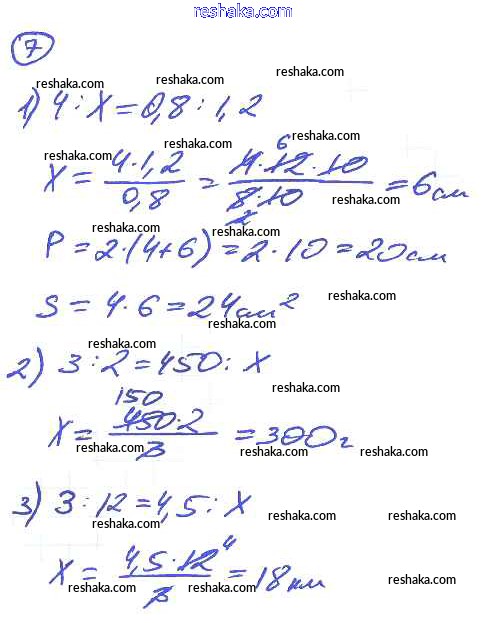 reshaka.com
7
reshaka.com
reshaka.com
reshaka.com
1) 4 : X = 0,8 : 1,2
reshaka.com
reshaka.com
reshaka.com
X = (4 · 1,2)/(0,8) = (4 · 12 · 10)/(8 · 10) = 6 см
6
2
reshaka.com
reshaka.com
P = 2 · (4 + 6) = 2 · 10 = 20 см
reshaka.com
S = 4 · 6 = 24 см²
reshaka.com
reshaka.com
2) 3 : 2 = 450 : X
reshaka.com
150
X = (450 · 2)/3 = 300 г
reshaka.com
reshaka.com
reshaka.com
3) 3 : 12 = 4,5 : X
reshaka.com
reshaka.com
reshaka.com
4
X = (4,5 · 12)/3 = 18 км
reshaka.com
reshaka.com
reshaka.com